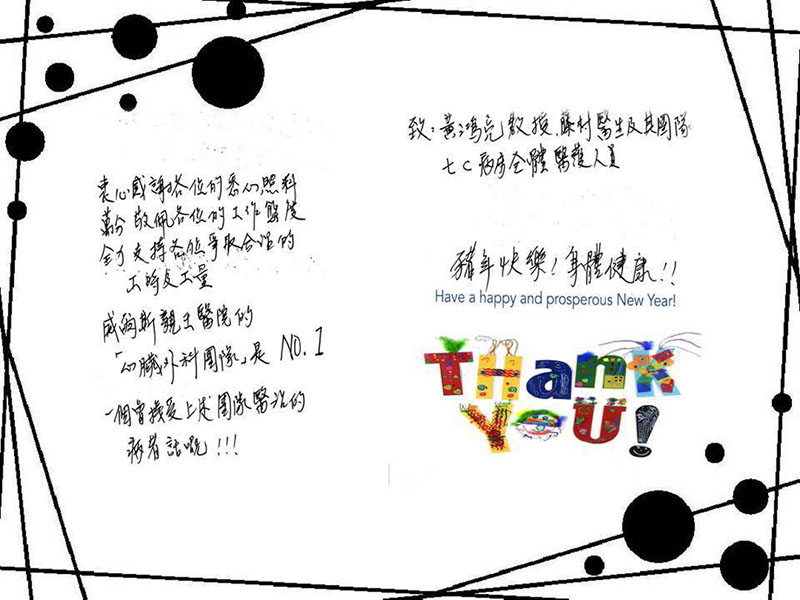 衷心感謝各位的悉心照料
萬分敬佩各位的工作態度
全力支持各位爭取合理的
工時及工量
威爾斯親王醫院的
「心臟外科團隊」是 NO.1
一個曾接受上述團隊醫治的
病者話呢!!!
致:黃鴻亮教授、藤村醫生及其團隊
七C病房全體醫護人員
豬年快樂!身體健康!!
Have a happy and prosperous New Year!
THanK
YOU!